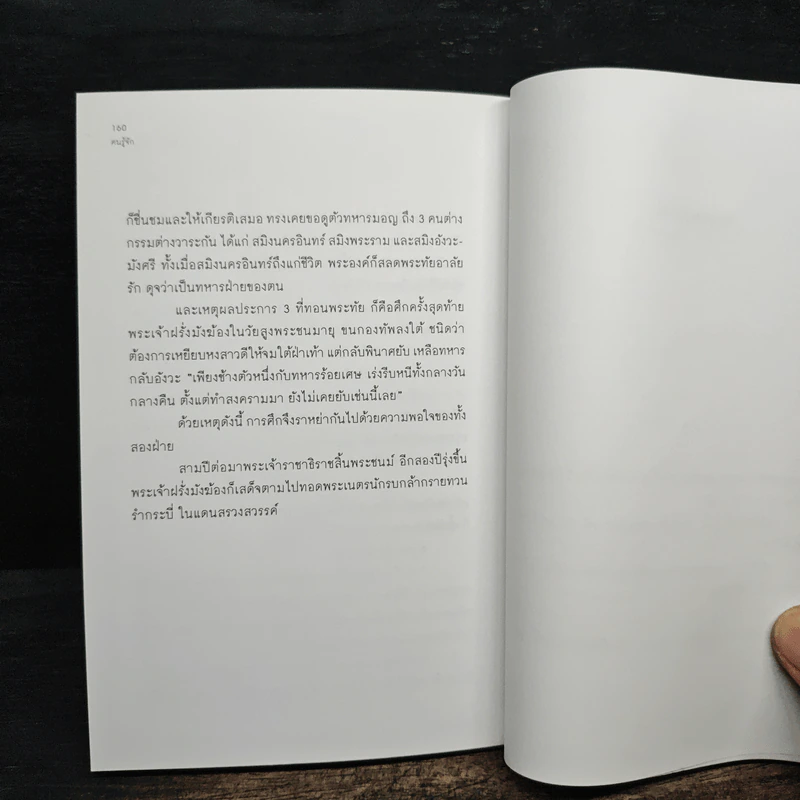 160
คนรู้จัก
ก็ชื่นชมและให้เกียรติเสมอ ทรงเคยขอดูตัวทหารมอญ ถึง 3 คนต่าง
กรรมต่างวาระกัน ได้แก่ สมิงนครอินทร์ สมิงพระราม และสมิงอังวะ-
มังศรี ทั้งเมื่อสมิงนครอินทร์ถึงแก่ชีวิต พระองค์ก็สลดพระทัยอาลัย
รัก ดุจว่าเป็นทหารฝ่ายของตน
และเหตุผลประการ 3 ที่ทอนพระทัย ก็คือศึกครั้งสุดท้าย
พระเจ้าฝรั่งมังฆ้องในวัยสูงพระชนมายุ ขนกองทัพลงใต้ ชนิดว่า
ต้องการเหยียบหงสาวดีให้จมใต้ฝ่าเท้า แต่กลับพินาศยับ เหลือทหาร
กลับอังวะ "เพียงช้างตัวหนึ่งกับทหารร้อยเศษ เร่งรีบหนีทั้งกลางวัน
กลางคืน ตั้งแต่ทำสงครามมา ยังไม่เคยยับเช่นนี้เลย"
ด้วยเหตุดังนี้ การศึกจึงราหย่ากันไปด้วยความพอใจของทั้ง
สองฝ่าย
สามปีต่อมาพระเจ้าราชาธิราชสิ้นพระชนม์ อีกสองปีรุ่งขึ้น
พระเจ้าฝรั่งมังฆ้องก็เสด็จตามไปทอดพระเนตรนักรบกล้ากรายทวน
รำกระบี่ ในแดนสรวงสวรรค์